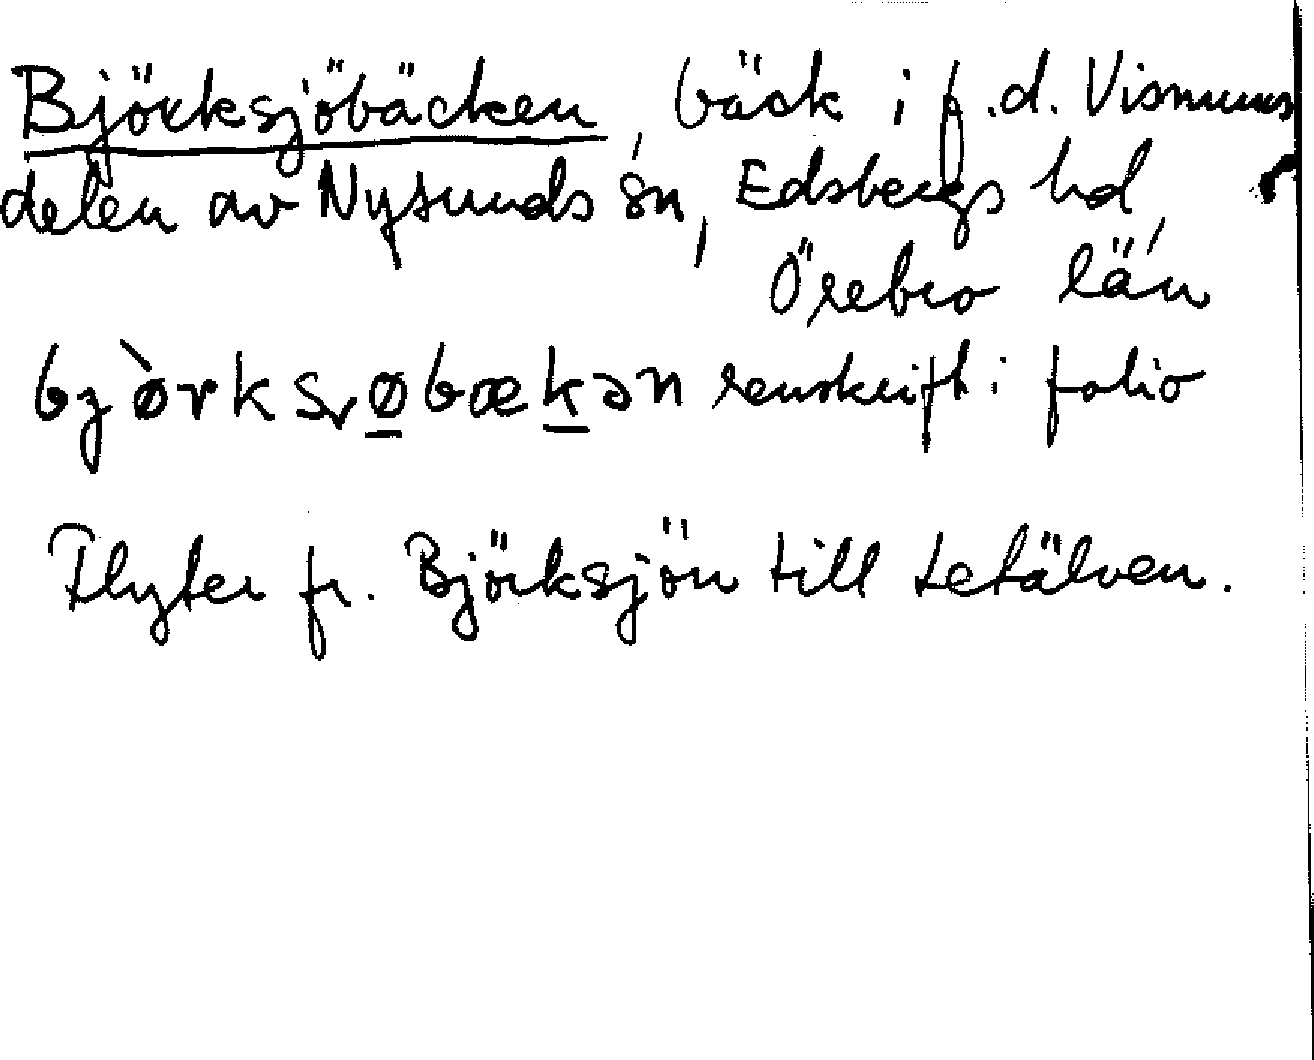 Björksjöbäcken, bäck i f.d. Visnums
delen av Nysunds sn, Edsbergs hd,
Örebro län
bjòrksrøbækən renskrift i folio
Flyter fr. Björksjön till Letälven.